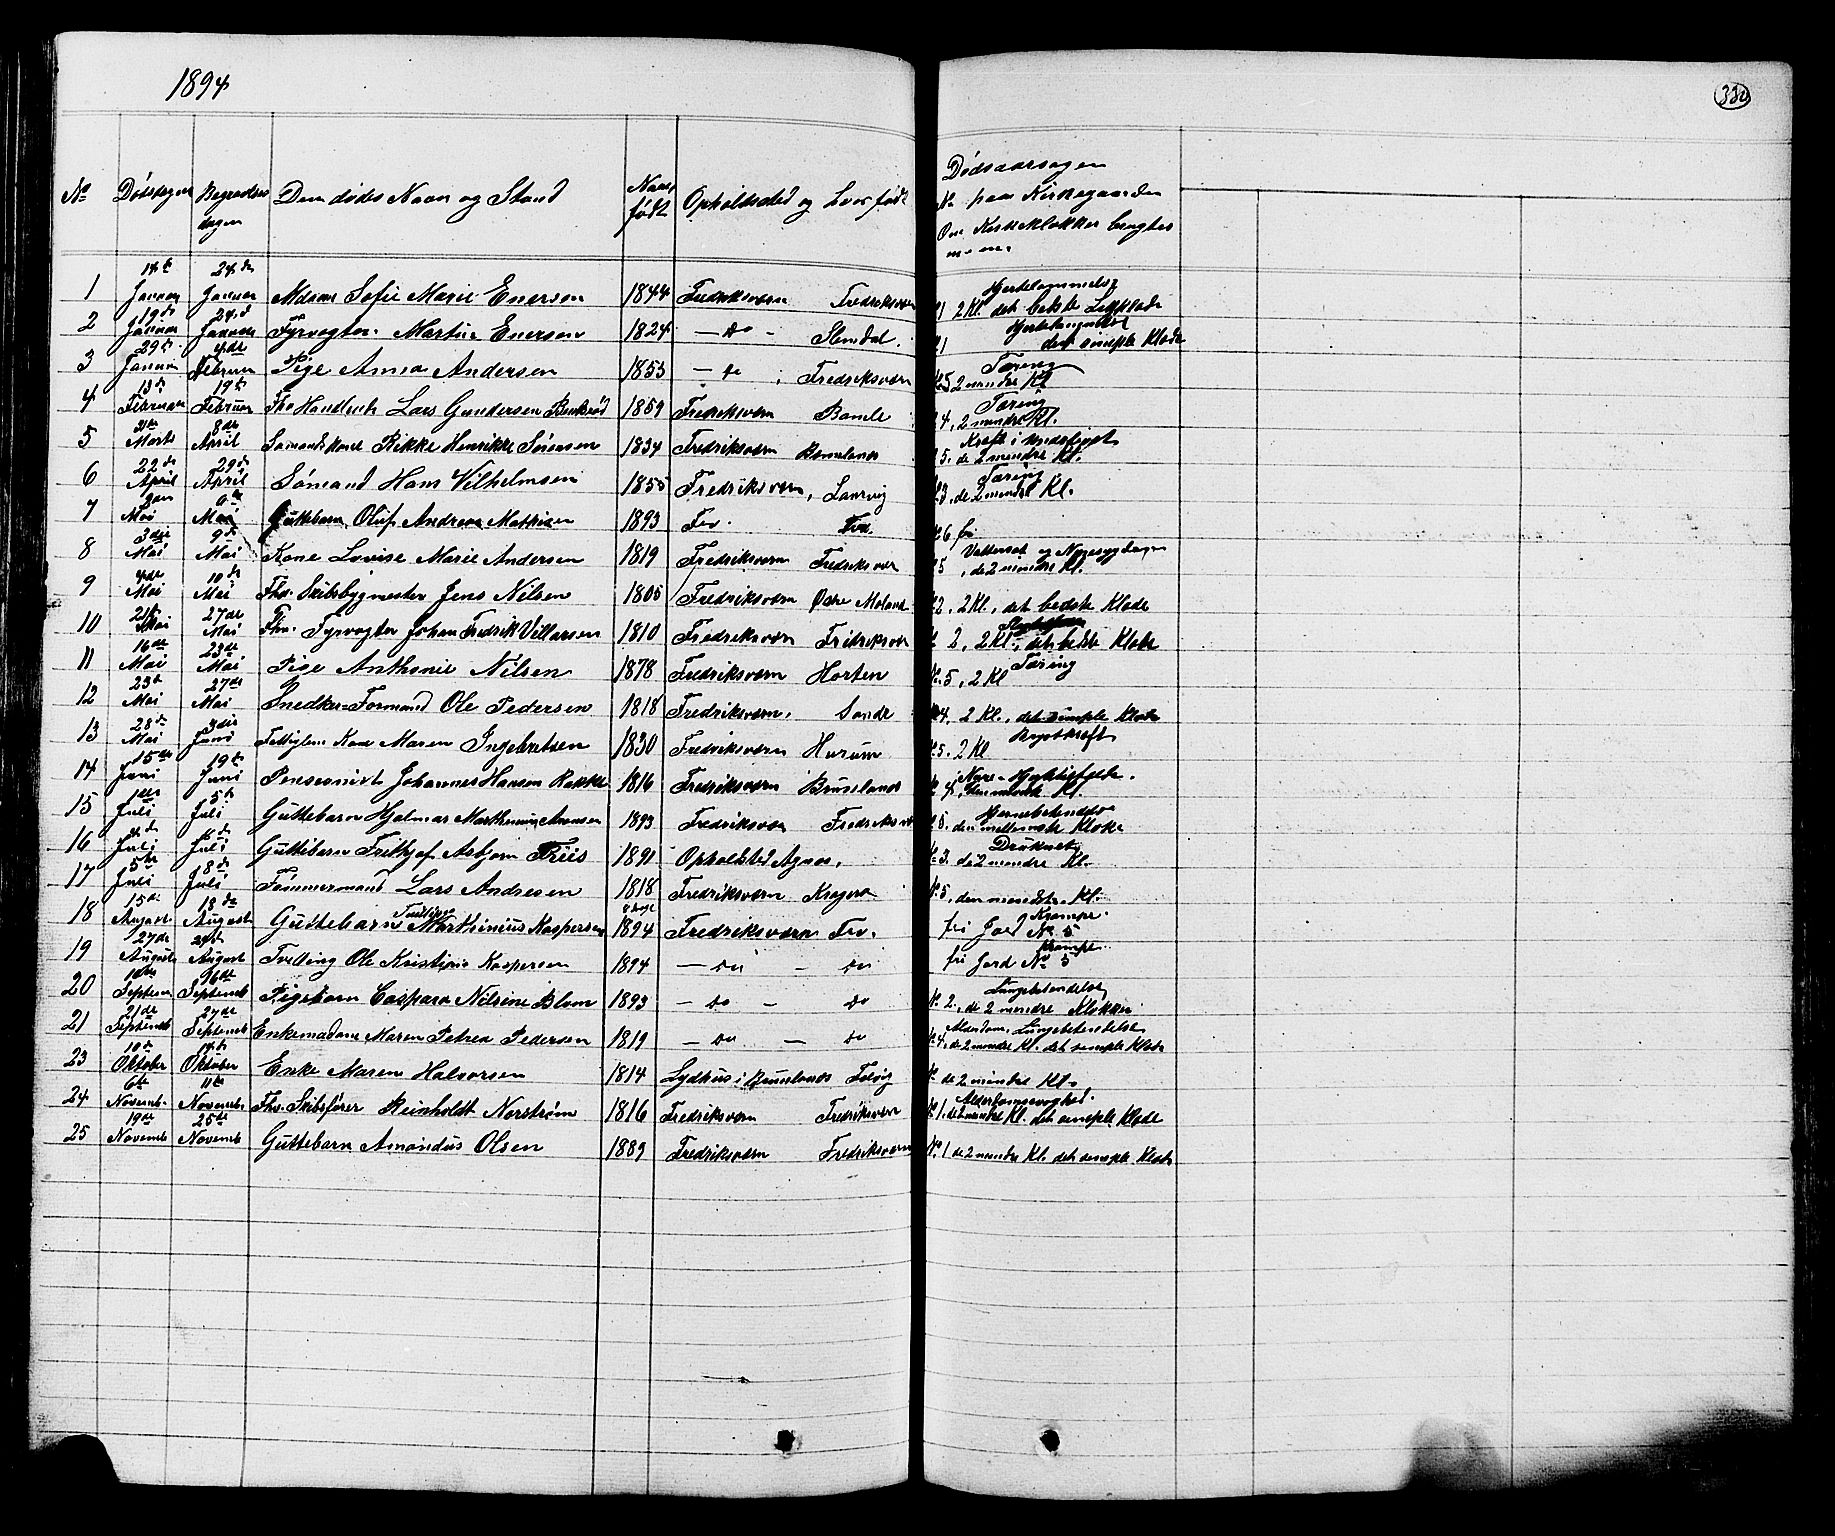 1894
330
No Dødsdagen Begravelses dagen Den dødes Navn og Stand Naar født Opholdssted og hvor født Dødsaarsagen
No paa Kirkegaarden
Om Kirkeklokker brugtes
m. m.
1 18de Januar 24de Januar Madame Sofie Marie Enersen 1844 Fredriksværn Fredriksværn Hjertelammelse 1 2 Kl. det bedste Ligklæde
2 19de Januar 24de Januar Fyrvogter Martin Enersen 1824 — do — Slemdal. 1 det simple Klæde
3 29de Januar 4de Februar Pige Anna Andersen 1853 — do Fredriksværn Tæring 5 2 mindre Kl
4 13de Februar 19de Februar Fhv Handlende Lars Gundersen 1859 Fredriksværn Bamle Tæring 4, 2 mindre Kl.
5 Marts 8de April Sømandskone Rikke Henrikke Sørensen 1834 Fredriksværn Brunelanes Kræft i Underlivet 5. de 2 mindre Kl.
6 22de April 29de April Sømand Hans Vilhelmsen 1855 Fredriksværn, Laurvig Tæring 3, de 2 mindre Kl.
7 2den Mai 6te Mai Guttebarn Oluf Andreas Mathisen 1893 Frv. Frv. 6 fri
8 3die Mai 9de Mai Kone Lovise Marie Andersen 1819 Fredriksværn Fredriksværn Vattersot og Nyresygdom 5, de 2 mindre Kl.
9 4de Mai 10de Mai Fhv. Skibsbygmester Jens Nilsen 1805 Fredriksværn Østre Moland 2, 2 Kl., det bedste Klæde
10 21de Mai 27de Mai Fhv. Fyrvogter Johan Fredrik Villarsen 1810 Fredriksværn Fredriksværn 2, 2 Kl., det bedste Klæde
11 16de Mai 23de Mai Pige Anthonie Nilsen 1878 Fredriksværn Horten Tæring No. 5, 2 Kl
12 23de Mai 27de Mai Snedker-Formand Ole Pedersen 1818 Fredriksværn, Sande 4, 2 Kl., det simple Klæde
13 28de Mai 3die Juni Kone Maren Ingebretsen 1830 Fredriksværn Hurum Brystkræft 5. 2 Kl
14 15de Juni 19de Juni Pensionist Johannes Hansen Rakke 1816 Fredriksværn Brunelanes Kl.
15 1ste Juli 5te Juli Guttebarn Hjalmar Marthinius Arensen 1893 Fredriksværn Fredriksværn Hjernebetændelse 5. den mellemste Klokke
16 Juli Juli Guttebarn Frithjof Asbjørn Friis 1891 Opholdsted Agnes. Druknet No. 3. de 2 mindre Kl.
17 5te Juli 8de Juli Tømmermand Lars Andresen 1818 Fredriksværn Kragerø No. 5, den mindste Kl.
18 15de August 18de August Guttebarn Tvilling Marthinius Kaspersen 1894 Fredriksværn Frv. Krampe. fri Jord No 5
19 27de August August Tvilling Ole Kristian Kaspersen 1894 — do — do Krampe fri Jord No 5
20 September 26de September Pigebarn Caspara Nilsine Blom 1893 — do — do Lungebetændelse No 2., de 2 mindre Klokker
21 21de September 27de September Enkemadame Maren Petrea Pedersen 1819 — do — do Alderdom, Lungebetændelse No 4, de 2 mindre Kl. det simple Klæde
23 10de Oktober 14de Oktober Enke Maren Halvorsen 1814 Lydhus i Brunelanes Tølvig No de 2 mindre Kl.
24 6te November 11te November Fhv. Skibsfører Reinholdt Norstrøm 1816 Fredriksværn Fredriksværn Alderdomssvaghed. No 1. de 2 mindre Kl. det simple Klæde
25 19de November 25de November Guttebarn Amandus Olsen 1889 Fredriksværn Fredriksværn No. 1 de 2 mindre Kl. det simple Klæde